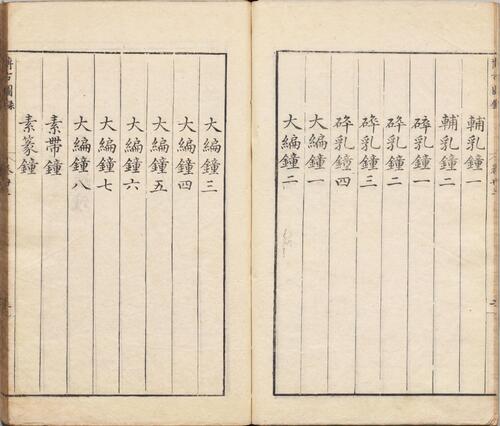 輔乳鐘一
輔乳鐘二
碎乳鐘一
碎乳鐘二
碎乳鐘三
碎乳鐘四
大編鐘一
大編鐘二
大編鐘三
大編鐘四
大編鐘五
大編鐘六
大編鐘七
大編鐘八
素帶鐘
素篆鐘